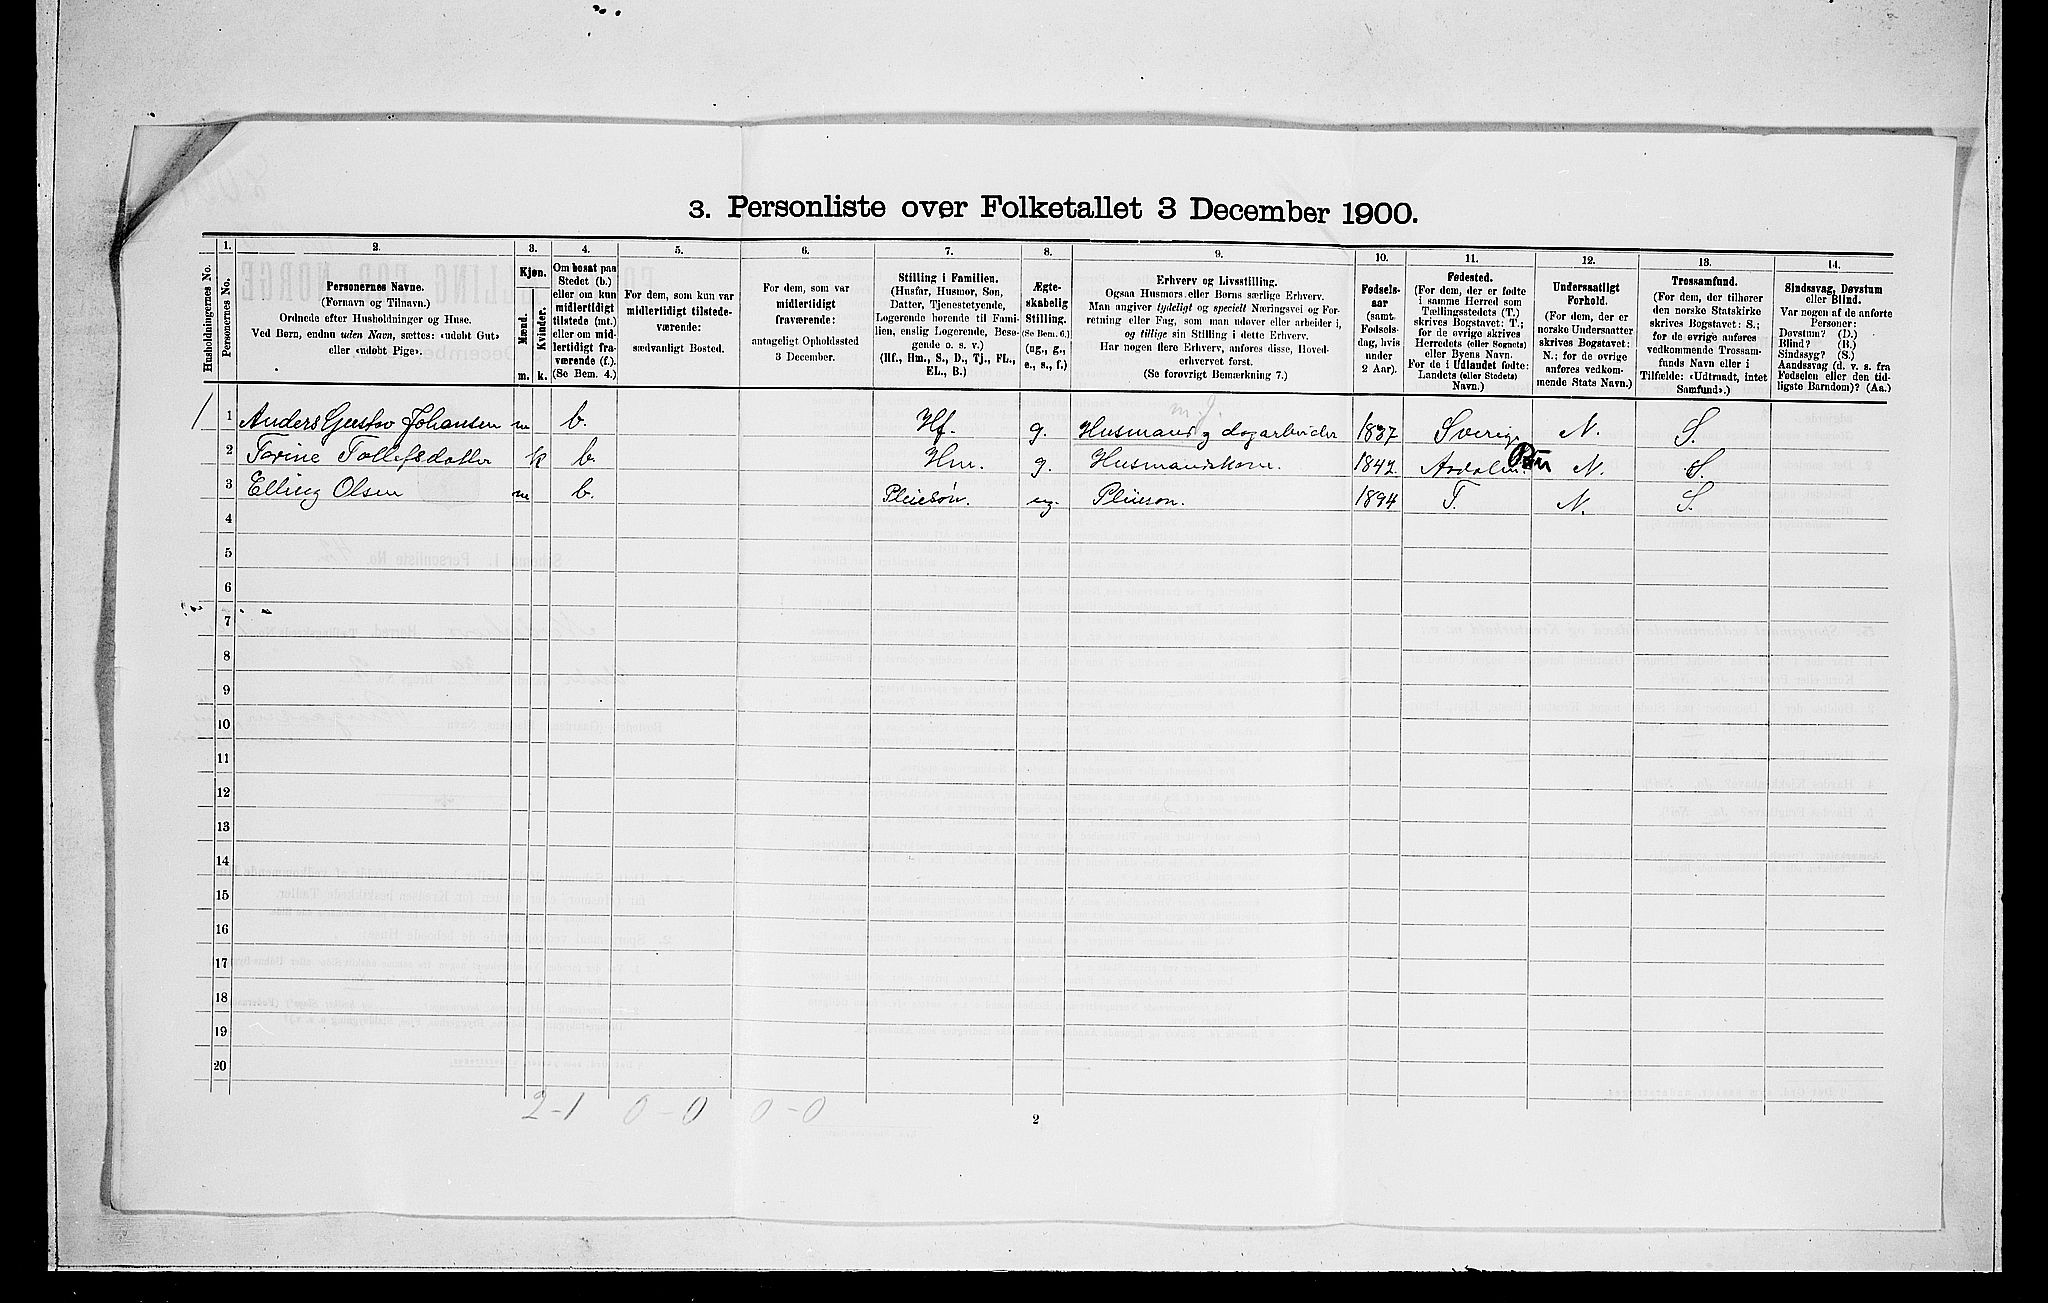 3. Personliste over Folketallet 3 December 1900.
Husholdningernes No.
1.
Personernes No.
2.
Personernes Navne.
(Fornavn og Tilnavn.)
Ordnede efter Husholdninger og Huse.
Ved Børn, endnu uden Navn, sættes: «udøbt Gut»
eller «udøbt Pige».
3.
Kjøn.
Mænd.
Kvinder.
m. k.
4.
Om bosat paa
Stedet (b.)
eller om kun
midlertidigt
tilstede (mt.)
eller om mid-
lertidigt fra-
værende (f.).
(Se Bem. 4.)
5.
For dem, som kun var
midlertidigt tilstede-
værende:
sædvanligt Bosted.
6.
For dem, som var
midlertidigt
fraværende:
antageligt Opholdssted
3 December.
7.
Stilling i Familien.
(Husfar, Husmor, Søn,
Datter, Tjenestetyende,
Logerende hørende til Fami-
lien, enslig Logerende, Besø-
gende o. s. v.)
(Hf., Hm., S., D., Tj., FL.,
EL., B.)
8.
Ægte-
skabelig
Stilling.
(Se Bem. 6.)
(ug., g.,
e., s., f.)
9.
Erhverv og Livsstilling.
Ogsaa Husmors eller Børns særlige Erhverv.
Man angiver tydeligt og specielt Næringsvei og For-
retning eller Fag, som man udøver eller arbeider i,
og tillige sin Stilling i dette Erhverv.
Har nogen flere Erhverv, anføres disse, Hoved-
erhvervet først.
(Se forøvrigt Bemærkning 7.)
10.
Fødsels-
aar
(samt
Fødsels-
dag, hvis
under
2 Aar).
11.
Fødested.
(For dem, der er fødte
i samme Herred som
Tællingsstedets (T.)
skrives Bogstavet: T.;
for de øvrige skrives
Herredets (eller Sognets)
eller Byens Navn.
For de i Udlandet fødte:
Landets (eller Stedets)
Navn.)
12.
Undersaatligt
Forhold.
(For dem, der er
norske Undersaatter
skrives Bogstavet:
N.; for de øvrige
anføres vedkom-
mende Stats Navn.)
13.
Trossamfund.
(For dem, der tilhører
den norske Statskirke
skrives Bogstavet: S.;
for de øvrige anføres
vedkommende Trossam-
funds Navn eller i
Tilfælde: «Udtraadt, intet
Samfund».)
14.
Sindssvag, Døvstum
eller Blind.
Var nogen af de anførte
Personer:
Døvstum? (D.)
Blind? (B.)
Sindssyg? (S.)
Aandssvag (d. v. s. fra
Fødselen eller den tid-
ligste Barndom)? (Aa.)
m. J.
1 1 Anders Gustav Johansen m b. Hf. g. Husmand g dagarbeider 1837 Sverige N. S.
2 Torine Tollefsdatter k b. Hm. g. Husmandskone. 1842 N. S.
3 Elling Olsen m b. Pleiesøn. ug. Pleieson. 1894 T. N. S.
4
5
6
7
8
9
10
11
12
13
14
15
16
17
18
19
20
2-1 0-0 0-0
2